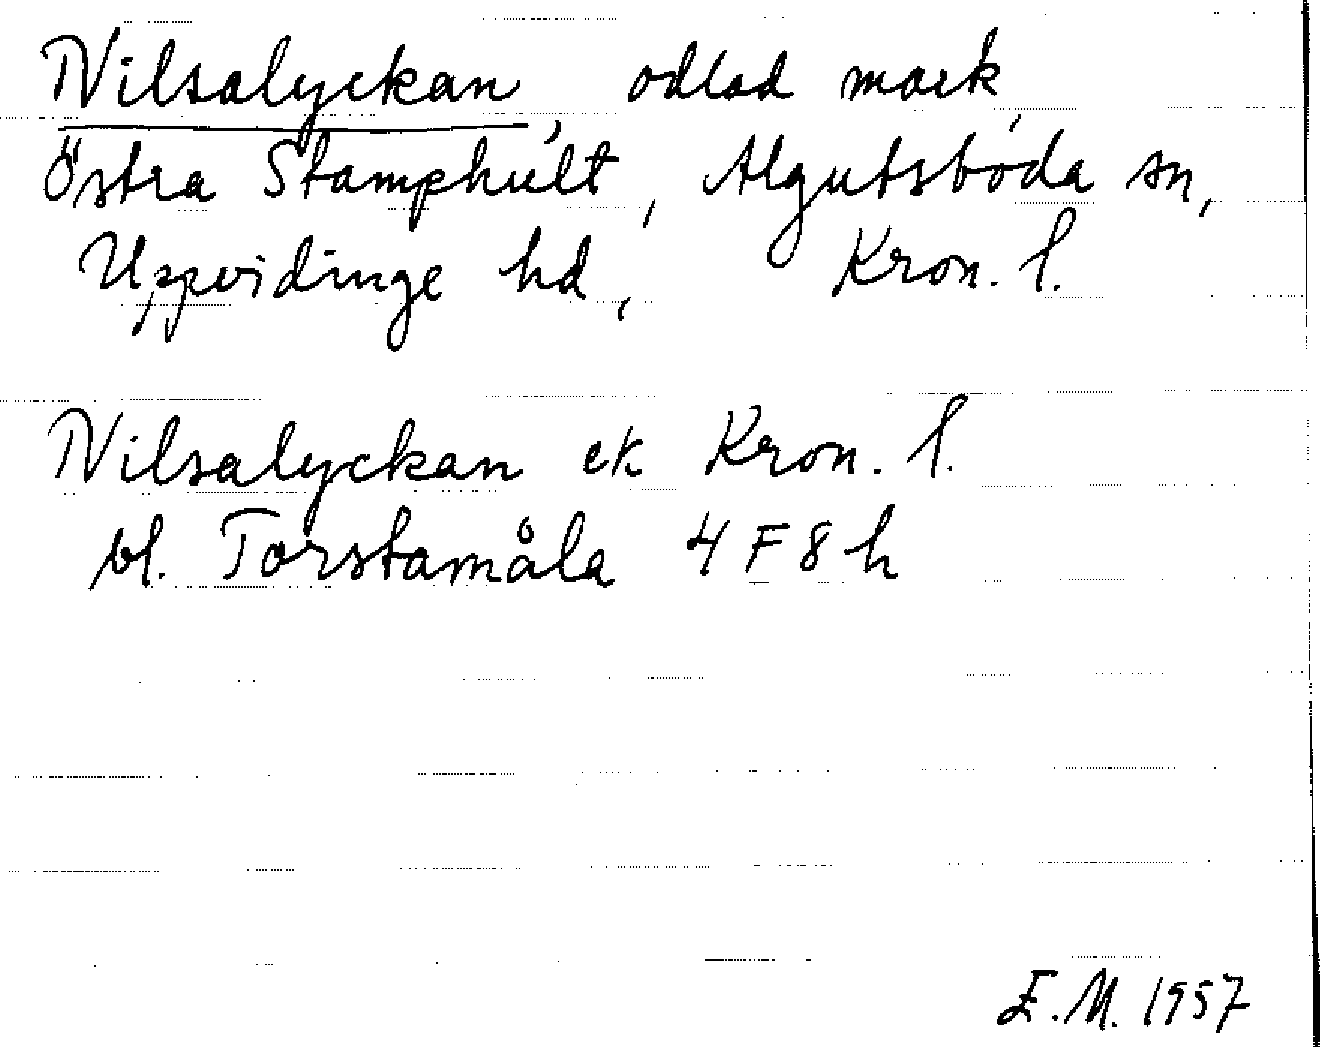 Nilsalyckan, odlad mark,
Östra Stamphult, Algutsboda sn,
Uppvidinge hd, Kron. l.
Nilsalyckan ek Kron. l.
bl. Torstamåla 4F8h
E.M. 1957